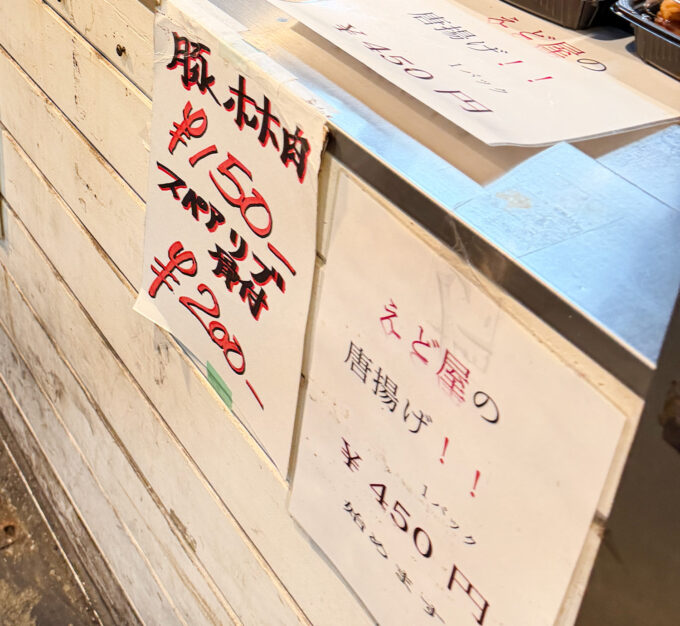 えど屋の
唐揚げ！！
1パック
￥450円
豚ホホ肉
￥150-
スペアリブ
骨付
￥200-
えど屋の
唐揚げ！！
1パック
￥450円
始めます